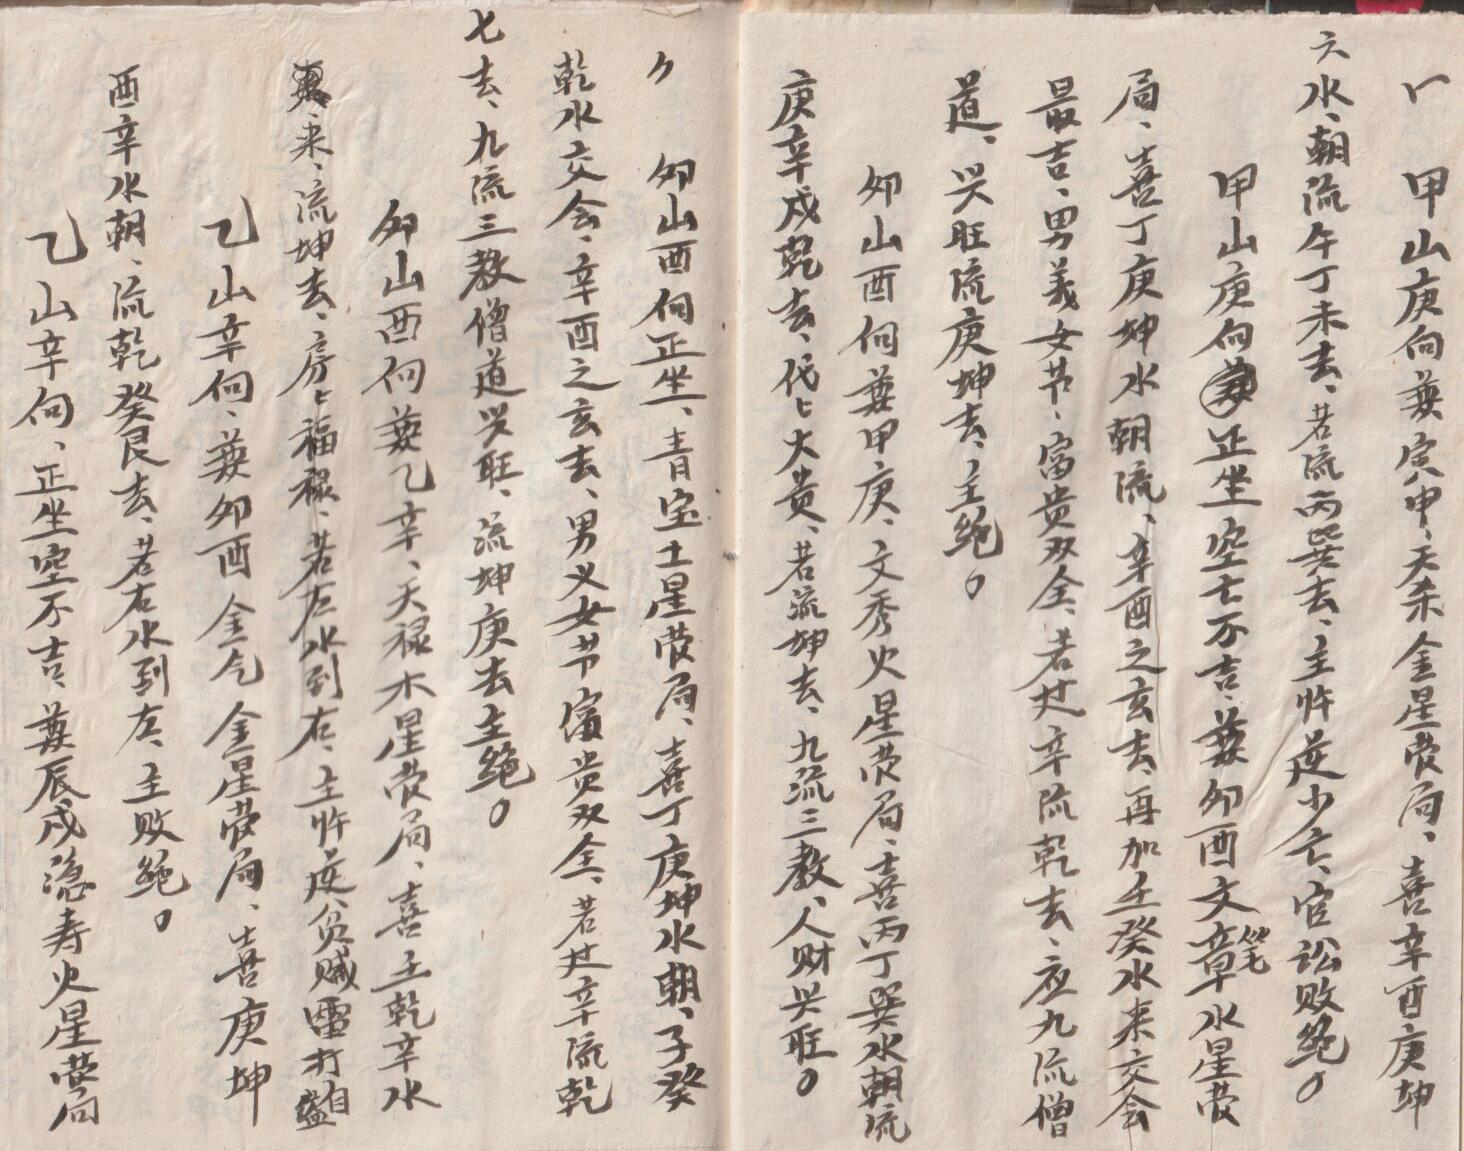 甲山庚向兼寅申、天杀金星营局、喜辛酉庚坤
六水、朝流午丁未去、若流丙巽去、主忤逆少亡、官讼败绝。
甲山庚向正坐空亡不吉、兼卯酉文章笔水星营
局、喜丁庚坤水朝流、辛酉之玄去、再加壬癸水来交会
最吉、男義女节、富贵双全、若过辛流乾去、应九流僧
道、兴旺流庚坤去、主绝。
卯山酉向兼甲庚、文秀火星营局、喜丙丁巽水朝流
庚辛戍乾去、代ヒ大贵、若流坤去、九流三教、人财兴旺。
卯山酉向正坐、青宝土星营局、喜丁庚坤水朝、子癸
乾水交会、辛酉之玄去、男义女节富贵双全、若过辛流乾
七去、九流三教僧道兴旺、流坤庚去主绝。
卯山酉向兼乙辛、天禄木星营局、喜壬乾辛水
来、流坤去、房ヒ福禄、若左水到右、主忤逆、贫贼雷打
乙山辛向、兼卯酉金气金星营局、喜庚坤
酉辛水朝、流乾癸艮去、若右水到左、主败绝。
乙山辛向、正坐空不吉、兼辰戍隐寿火星营局